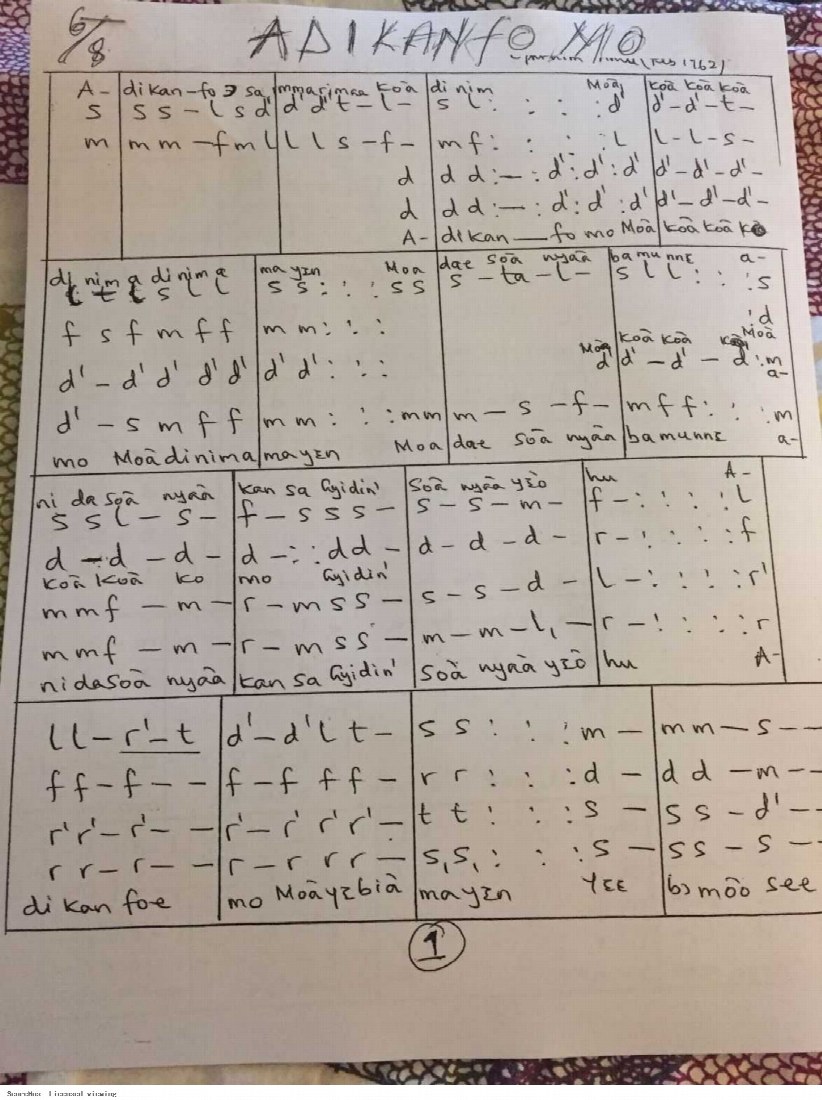 6/8 ADIKANFO MO
A- di kan-fo ɔ sa mmarimaa koà di nim Moà koà koà koà
s s s - l s d' d' d' t - l - s l : : : : d' d'- d'- t -
m m m - f m l l l s - f - m f : : : : l l - l - s -
d d d : — : d' : d' : d' d' - d' - d' -
d d d : — : d' : d' : d' d' - d' - d' -
A- dikan — fo mo Moà koà koà
di nim a di nim a ma yɛn Moa dae soà nyàà ba mu nnɛ a-
t t t s l l s s : : : s s s - ta - l - s l l : : : s
f s f m f f m m : : : : d
Moà koà koà Moà
d' - d' d' d' d' d' d' : : : d' d' - d' - d' : m
a-
d' - s m f f m m : : : m m m - s - f - m f f : : : m
mo Moà di nim a ma yɛn Moa dae soà nyàà ba mu nnɛ a-
ni da soà nyàà kan sa Gyidin' soà nyàà yɛò hu A-
s s l - s - f - s s s - s - s - m - f - : : : : l
d - d - d - d - : : d d - d - d - d - r - : : : : f
koà koà ko mo Gyidin'
m m f - m - r - m s s - s - s - d - l - : : : : r'
m m f - m - r - m s s - m - m - l, - r - : : : : r
ni da soà nyàà kan sa Gyidin' soà nyàà yɛò hu A-
l l - r' - t d' - d' l t - s s : : : m - m m — s - -
f f - f - - f - f f f - r r : : : d - d d - m - -
r' r' - r' - - r' - r' r' r' - t t : : : s - s s - d' - -
r r - r - - r - r r r - s, s, : : : s - s s - s - -
di kan foe mo Moà yɛ bià ma yɛn Yɛɛ bɔ mòo see
1